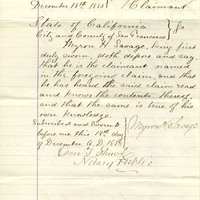 December 18th 188 Claimant
State of California
City and County of San Francisco } ss
Myron H. Savage, being first
duly sworn, doth depose and say
that he is the claimant named
in the foregoing claim, and that
he has heard the said claim read
and knows the contents thereof,
and that the same is true of his
own knowledge.
Subscribed and Sworn to
before me this 18th day } Myron H. Savage
of December A.D. 188
Notary Public